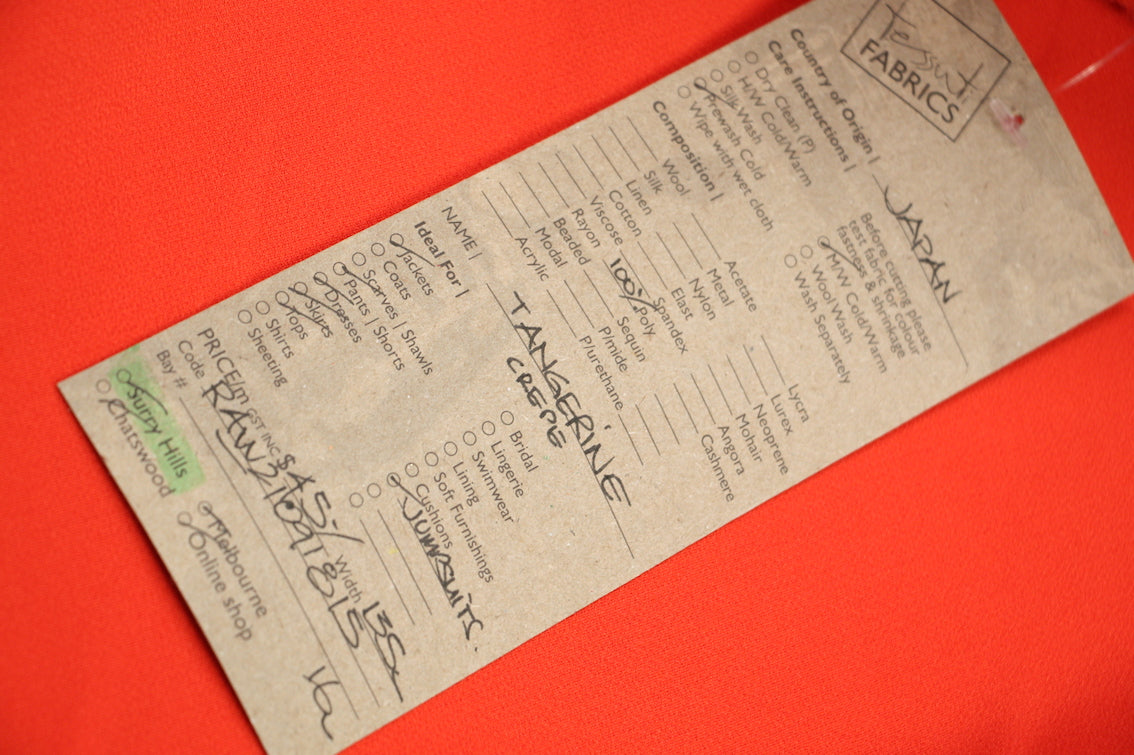 tessuti
FABRICS
Country of Origin | JAPAN
Care Instructions |
Before cutting please
test fabric for colour
fastness & shrinkage
Dry Clean (P)
H/W Cold/Warm
Silk Wash
Prewash Cold
Wipe with wet cloth
M/W Cold/Warm
Wool Wash
Wash Separately
Composition |
Wool
Silk
Linen
Cotton
Viscose
Rayon
Beaded
Modal
Acrylic
Acetate
Metal
Nylon
Elast
Spandex
100% Poly
Sequin
P/mide
P/urethane
Lycra
Lurex
Neoprene
Mohair
Angora
Cashmere
NAME | TANGERINE
CREPE
Ideal For |
Jackets
Coats
Scarves | Shawls
Pants | Shorts
Dresses
Skirts
Tops
Shirts
Sheeting
Bridal
Lingerie
Swimwear
Lining
Soft Furnishings
Cushions
JUMPSUITS.
PRICE/m GST INC $45./ Width 135
Code RAW21091815
Bay # 16a
Surry Hills
Chatswood
Melbourne
Online shop